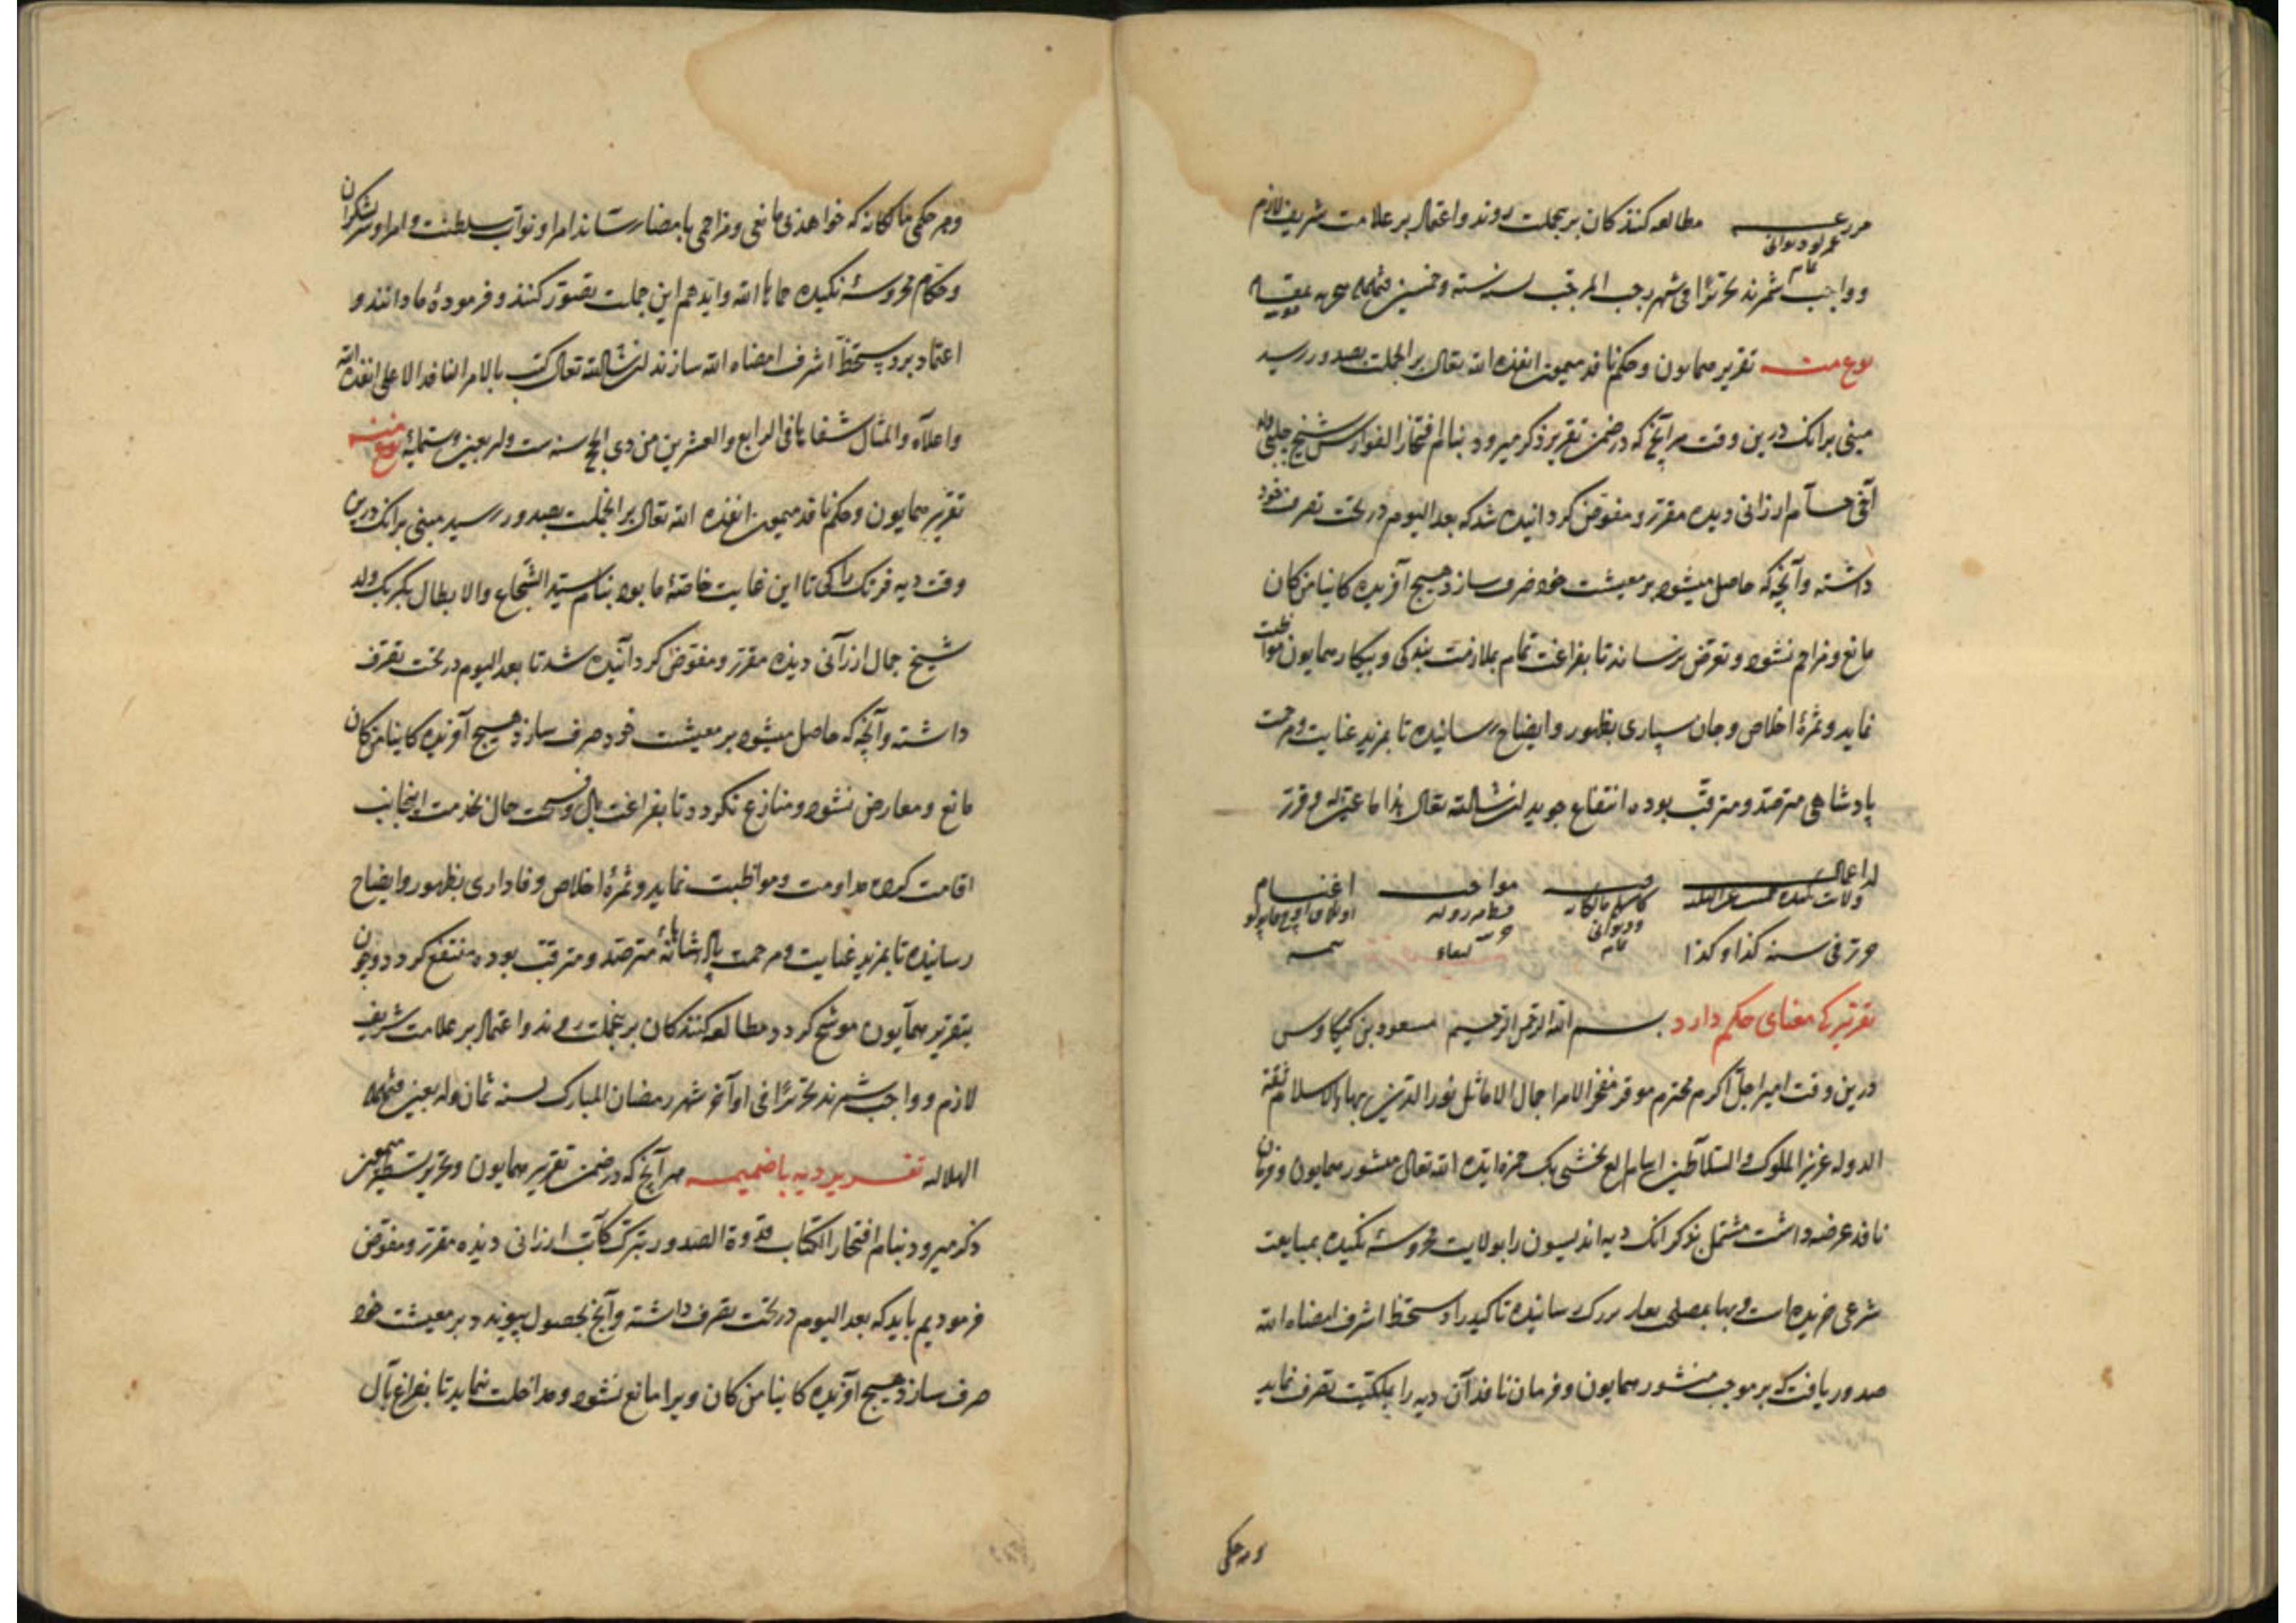 مطالعه کنندکان بر نجملت روند و اعتماد بر علامت شریف لازم
و واجب شمرند تحریرًا فی شهر رجب المرجب لسنه سته و خمسین
نوع منه تقریر همایون و حکم نافذ میمون انفذه الله تعالی بر انجملت بصدور رسید
مبنی برانک درین وقت هر آنج که در ضمن تقریر ذکر میرود بنام افتخار الفوارس شیخ چلبی ولد
آقی حسام ارزانی دیده مقرر و مفوض کردانیده شد که بعد الیوم در تحت تصرف خود
داشته و آنچه که حاصل میشود بر معیشت خود صرف سازد هیچ آفریده کاینا من کان
مانع و مزاحم نشود و تعرض نرساند تا بفراغت تمام بملازمت بندکی و بیکار همایون مواظبت
نماید و ثمرهٔ اخلاص و جان سپاری بظهور و ایضاح رسانیده تا بمزید عنایت و مرحمت
پادشاهی مترصد و مترقب بوده انتفاع جوید ان شاالله تعالی
اغنام
حرر فی سنه کذا و کذا
تقریر که معنای حکم دارد بسم الله الرحمن الرحیم مسعود بن کیکاوس
درین وقت امیر اجل اکرم محترم موقر مفخر الامرا جمال الاماثل نور الدین بهاء الاسلام ثقة
الدوله عزیز الملوک و السلاطین بخشی بک حمزه ایده الله تعالی منشور همایون و فرمان
نافذ عرضه داشت مشتمل بذکر انک دیه اندیسون را بولایت محروسه نکیده بمبایعت
شرعی خریده است و بها رسانیده تاکید را دستخط اشرف امضاه الله
صدور یافت که بر موجب منشور همایون و فرمان نافذ آن دیه را بملکیت تصرف نماید
و هر حکمی
و هر حکمی مالکانه که خواهد بی مانعی و مزاحمی بامضا رساند امرا و نواب سلطنت و امرا و سرلشکران
و حکام محروسهٔ نکیده حماها الله و ایدهم این جملت تصور کنند و فرمودهٔ ما دانند و
اعتماد بر دستخط اشرف امضاه الله سازند ان شاالله تعالی کتب بالامر النافذ الاعلی انفذه الله
و اعلاه و المثال شفاها فی الرابع و العشرین من ذی الحج سنه ست و اربعین و ستمایه نوع منه
تقریر همایون و حکم نافذ میمون انفذه الله تعالی بر انجملت بصدور رسید مبنی برانک درین
وقت دیه فرنک را کی تا این غایت خاصهٔ ما بود بنام سید الشجاع و الابطال بکربک ولد
شیخ جمال ارزانی دیده مقرر و مفوض کردانیده شد تا بعد الیوم در تحت تصرف
داشته و آنچه که حاصل میشود بر معیشت خود صرف سازد هیچ آفریده کاینا من کان
مانع و معارض نشود و منازع نکردد تا بفراغت بال و فسحت حال بخدمت اینجانب
اقامت کرده مداومت و مواظبت نماید و ثمرهٔ اخلاص و فاداری بظهور و ایضاح
رسانیده تا بمزید عنایت و مرحمت پادشاهانه مترصد و مترقب بوده منتفع کردد و چون
بتقریر همایون موشح کردد مطالعه کنندکان بر نجملت روند و اعتماد بر علامت شریف
لازم و واجب شمرند تحریرًا فی اواخر شهر رمضان المبارک لسنه ثمان و اربعین
الهلالیه تقریر دیه با ضمیمه هر آنج که در ضمن تقریر همایون و تحریر
ذکر میرود بنام افتخار الکتاب قدوة الصدور ارزانی دیده مقرر و مفوض
فرمودیم باید که بعد الیوم در تحت تصرف داشته و آنج بحصول پیوندد بر معیشت خود
صرف سازد هیچ آفریده کاینا من کان ویرا مانع نشود و مداخلت ننماید تا بفراغ بال